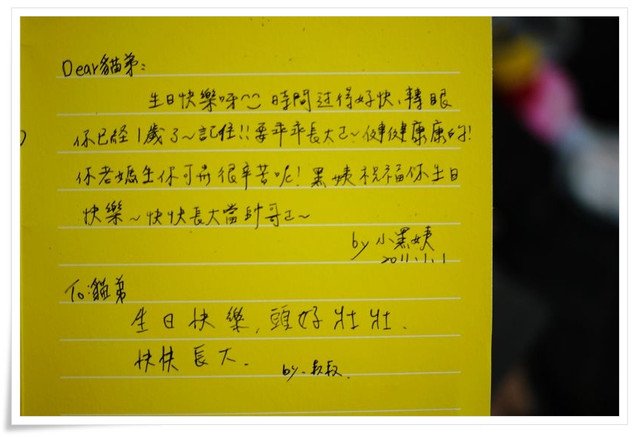 Dear貓弟:
生日快樂呀^^ 時間过得好快,轉眼
你已經1歲了~記住!!要乖乖長大ㄛ~健健康康的!
你老媽生你可是很辛苦呢! 黑姨祝福你生日
快樂~快快長大當帥哥ㄛ~
by 小黑姨
2011.1.1
To:貓弟
生日快樂,頭好壯壯.
快快長大.
by.叔叔.